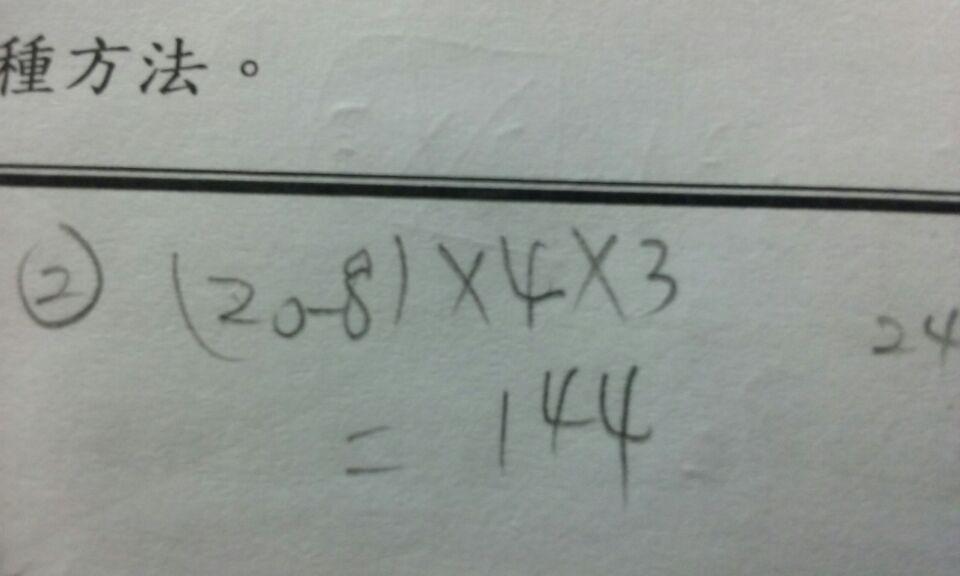 種方法。
② (20-8)×4×3
24
= 144